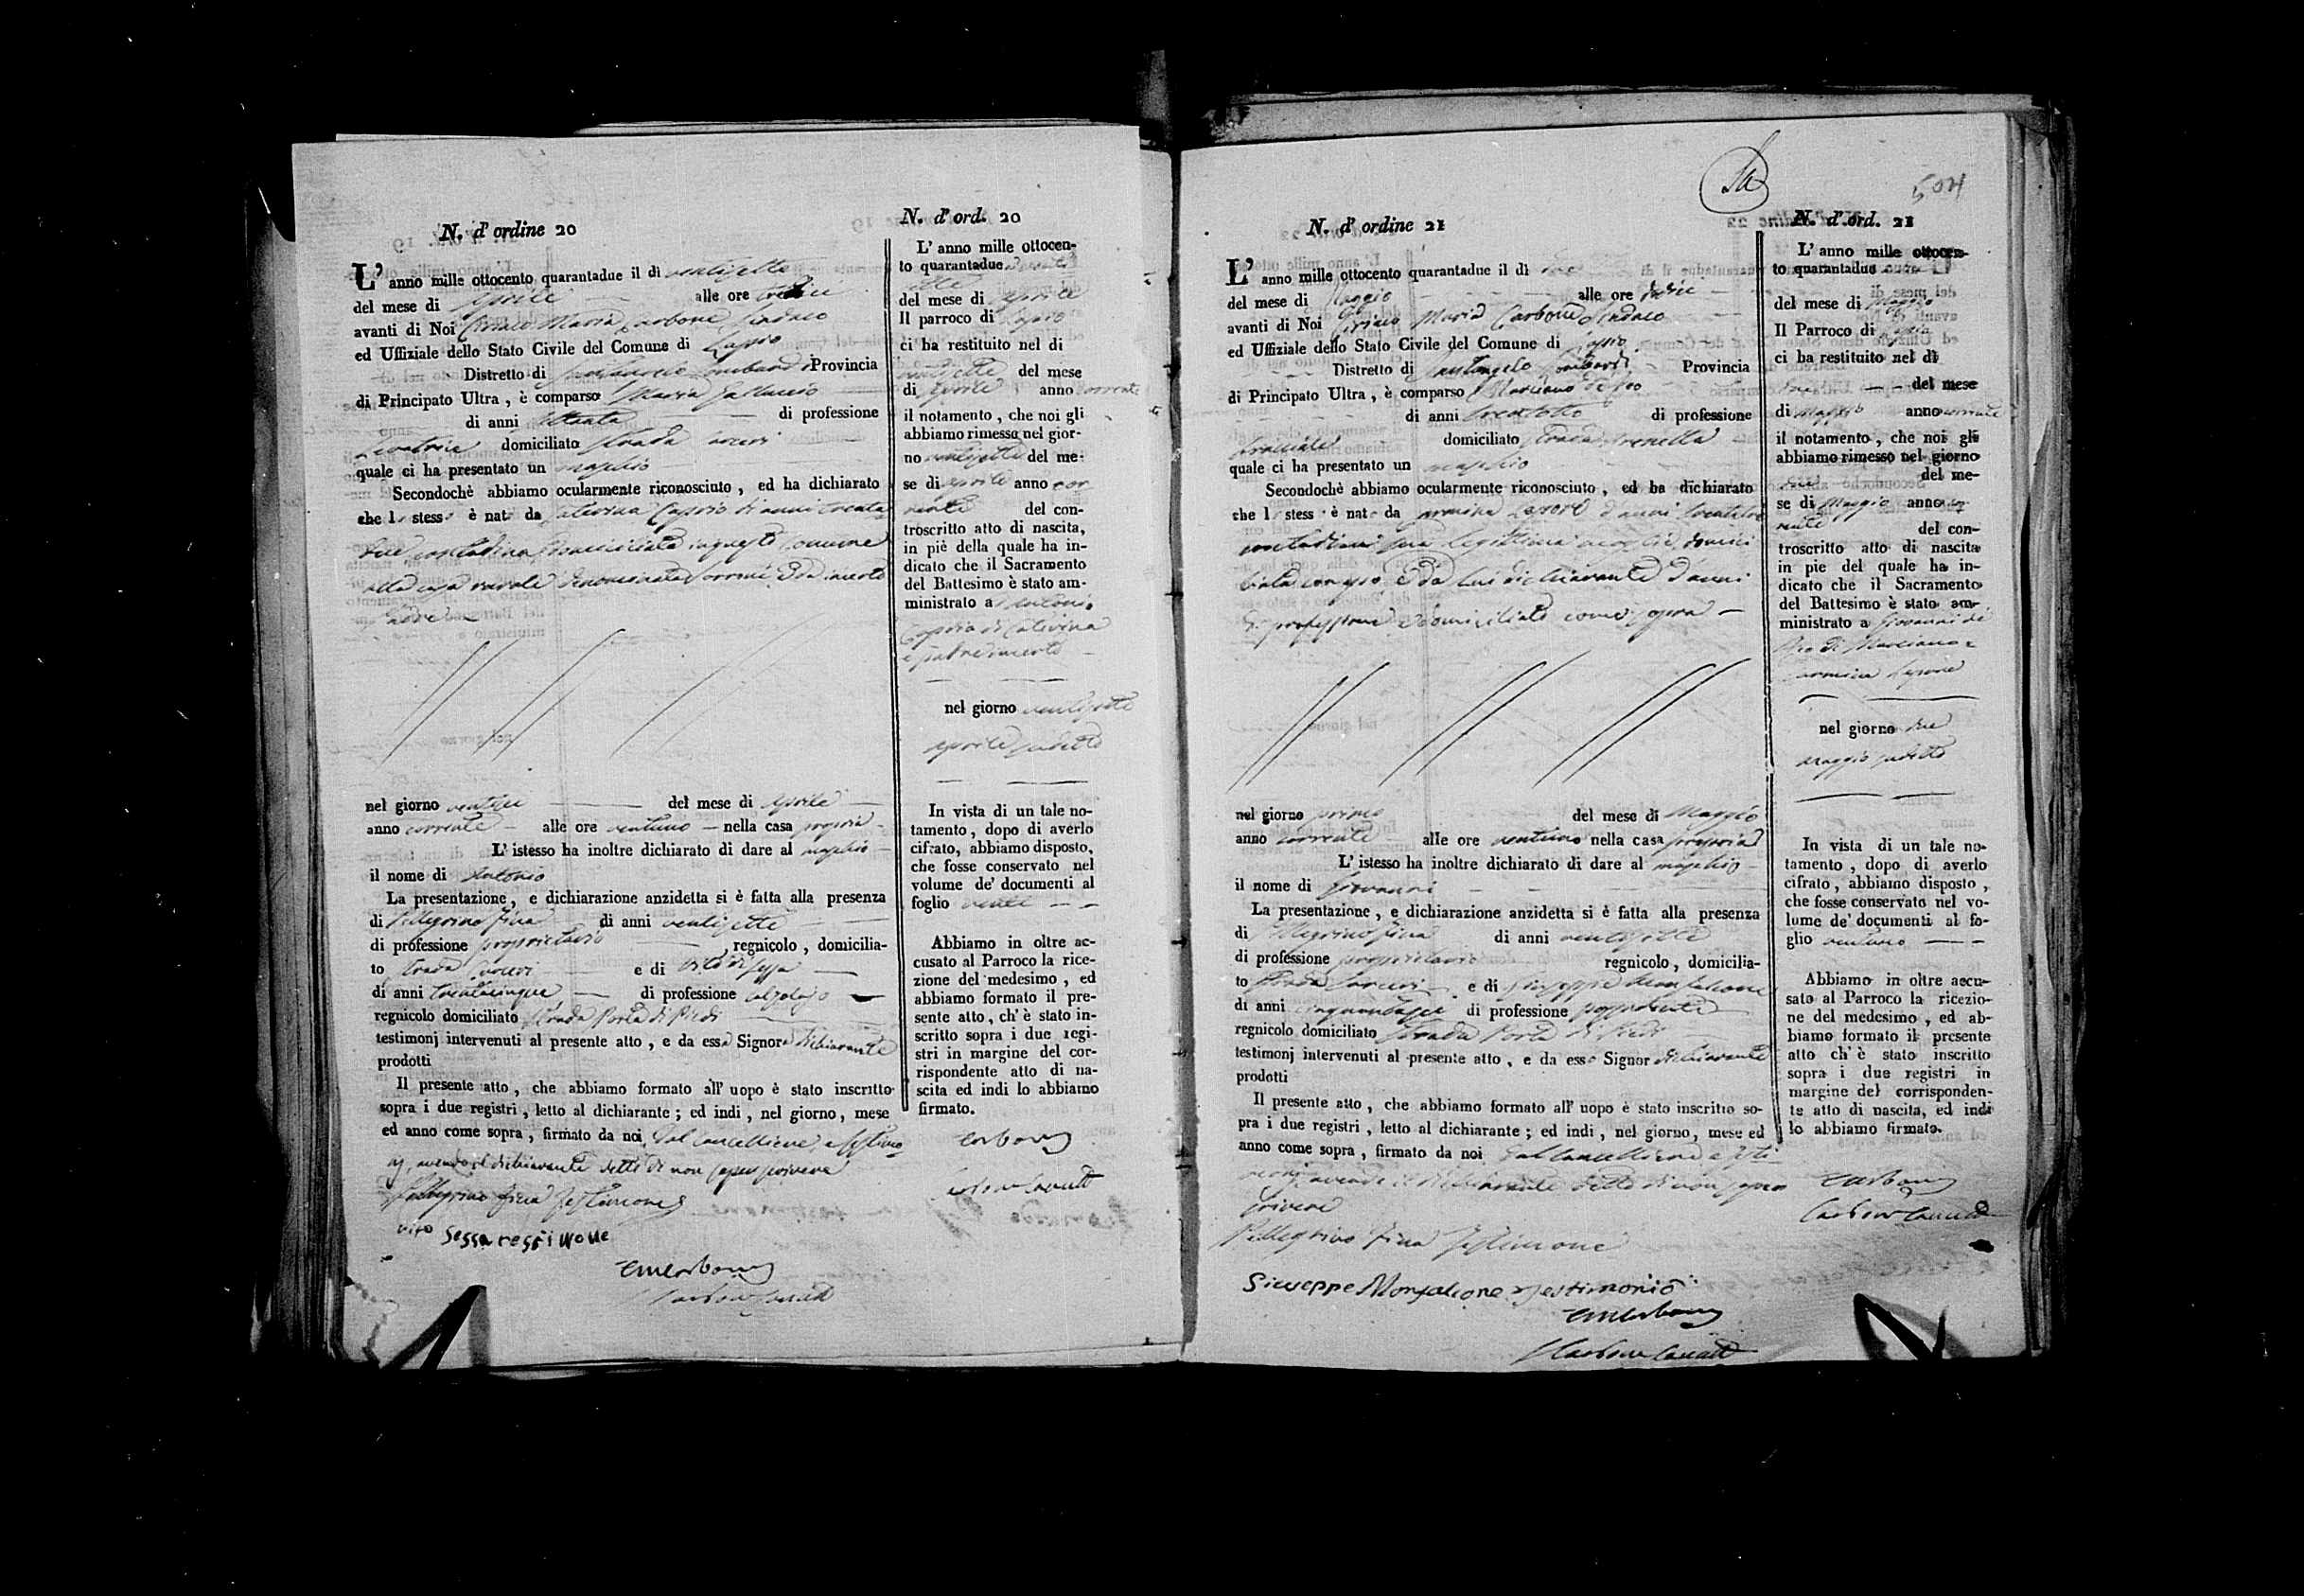 N. d' ordine 20
L' anno mille ottocento quarantadue il dì ventisette
del mese di Aprile alle ore tredici
avanti di Noi Ciriaco Maria Carbone Sindaco
ed Uffiziale dello Stato Civile del Comune di Lapio
Distretto di Santangelo Lombardi Provincia
di Principato Ultra , è comparsa Maria Galluccio
di anni settanta di professione
Levatrice domiciliata strada
quale ci ha presentato un maschio
Secondochè abbiamo ocularmente riconosciuto , ed ha dichiarato
che l stess è nat da Caterina Caprio di anni trenta
due contadina domiciliata in questo Comune
alla casa rurale denominata e da incerto
Padre
nel giorno ventisei del mese di Aprile
anno corrente alle ore ventuno nella casa propria
L' istesso ha inoltre dichiarato di dare al maschio
il nome di Antonio
La presentazione, e dichiarazione anzidetta si è fatta alla presenza
di Pellegrino Fina di anni ventisette
di professione proprietario regnicolo , domicilia-
to strada e di Vito di Sessa
di anni trentacinque di professione calzolajo
regnicolo domiciliato strada Porta di Piedi
testimonj intervenuti al presente atto , e da essa Signora dichiarante
prodotti
Il presente atto , che abbiamo formato all' uopo è stato inscritto
sopra i due registri , letto al dichiarante ; ed indi , nel giorno, mese
ed anno come sopra , firmato da noi, dal Cancelliere, e testimo
nj, avendo il dichiarante detto di non saper scrivere
Pellegrino Fina Testimone
vito Sessa testimone
N. d' ord. 20
L' anno mille ottocen-
to quarantadue
del mese di Aprile
Il parroco di Lapio
ci ha restituito nel di
ventisette del mese
di Aprile anno corrente
il notamento , che noi gli
abbiamo rimesso nel gior-
no ventisette del me-
se di Aprile anno cor
rente del con-
troscritto atto di nascita,
in piè della quale ha in-
dicato che il Sacramento
del Battesimo è stato am-
ministrato a Antonio
Caprio di Caterina
e padre incerto
nel giorno ventisette
Aprile sudetto
In vista di un tale no-
tamento, dopo di averlo
cifrato, abbiamo disposto,
che fosse conservato nel
volume de' documenti al
foglio venti
Abbiamo in oltre ac-
cusato al Parroco la rice-
zione del medesimo , ed
abbiamo formato il pre-
sente atto , ch' è stato in-
scritto sopra i due regi-
stri in margine del cor-
rispondente atto di na-
scita ed indi lo abbiamo
firmato.
504
N. d' ordine 21
L' anno mille ottocento quarantadue il dì due
del mese di Maggio alle ore
avanti di Noi Ciriaco Maria Carbone Sindaco
ed Uffiziale dello Stato Civile del Comune di Lapio
Distretto di Santangelo Lombardi Provincia
di Principato Ultra , è comparso Marciano de Feo
di anni trentotto di professione
bracciale domiciliato strada
quale ci ha presentato un maschio
Secondochè abbiamo ocularmente riconosciuto , ed ha dichiarato
che l stess è nat da Carmina Lepore d'anni
contadina sua legittima moglie, domici
liata con esso e da lui dichiarante d'anni
di professione e domiciliato come sopra
nel giorno primo del mese di Maggio
anno corrente alle ore ventuno nella casa propria
L' istesso ha inoltre dichiarato di dare al maschio
il nome di Giovanni
La presentazione, e dichiarazione anzidetta si è fatta alla presenza
di Pellegrino Fina di anni ventisette
di professione proprietario regnicolo , domicilia-
to strada e di Giuseppe Monfalcone
di anni cinquantasei di professione possidente
regnicolo domiciliato strada Porta di Piedi
testimonj intervenuti al presente atto , e da esso Signor dichiarante
prodotti
Il presente atto , che abbiamo formato all' uopo è stato inscritto so-
pra i due registri , letto al dichiarante ; ed indi , nel giorno, mese ed
anno come sopra , firmato da noi dal Cancelliere, e testi
monj, avendo il dichiarante detto di non saper
scrivere
Pellegrino Fina Testimone
Giuseppe Monfalcone Testimonio
N. d' ord. 21
L' anno mille ottocen-
to quarantadue
del mese di Maggio
Il Parroco di Lapio
ci ha restituito nel dì
due del mese
di Maggio anno corrente
il notamento , che noi gli
abbiamo rimesso nel giorno
due del me-
se di Maggio anno cor
rente del con-
troscritto atto di nascita
in pie del quale ha in-
dicato che il Sacramento
del Battesimo è stato am-
ministrato a Giovanni de
Feo di Marciano e
Carmina Lepore
nel giorno due
Maggio sudetto
In vista di un tale no-
tamento , dopo di averlo
cifrato , abbiamo disposto ,
che fosse conservato nel vo-
lume de' documenti al fo-
glio ventuno
Abbiamo in oltre accu-
sato al Parroco la ricezio-
ne del medesimo , ed ab-
biamo formato il presente
atto ch' è stato inscritto
sopra i due registri in
margine del corrisponden-
te atto di nascita, ed indi
lo abbiamo firmato.